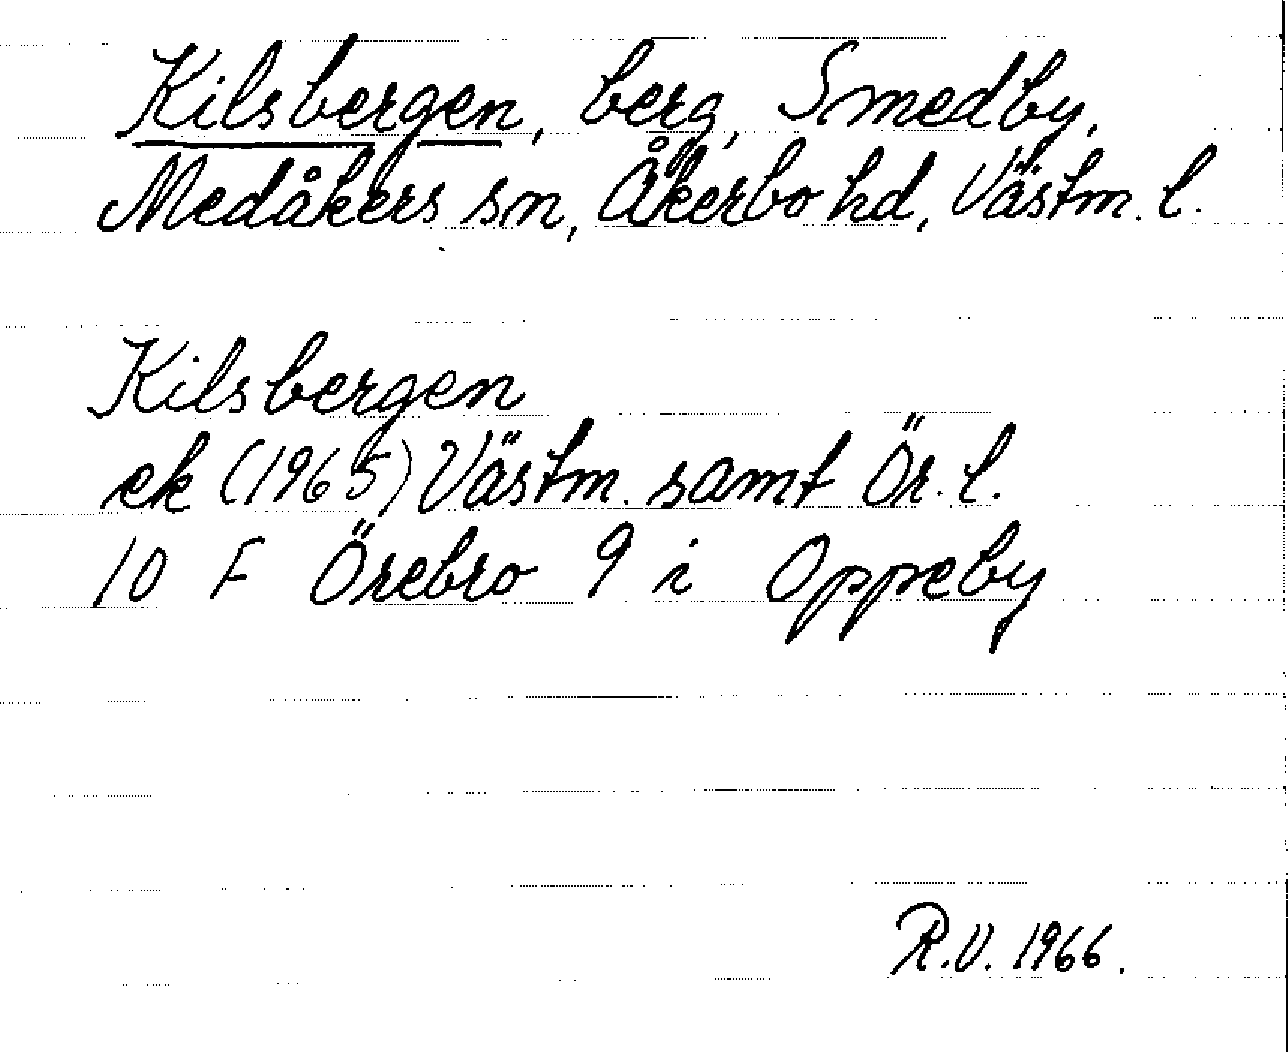 Kilsbergen, berg, Smedby,
Medåkers sn, Åkerbo hd, Västm. l.
Kilsbergen
ek (1965) Västm. samt Ör. l.
10 F Örebro 9 i Oppeby
R.V. 1966.